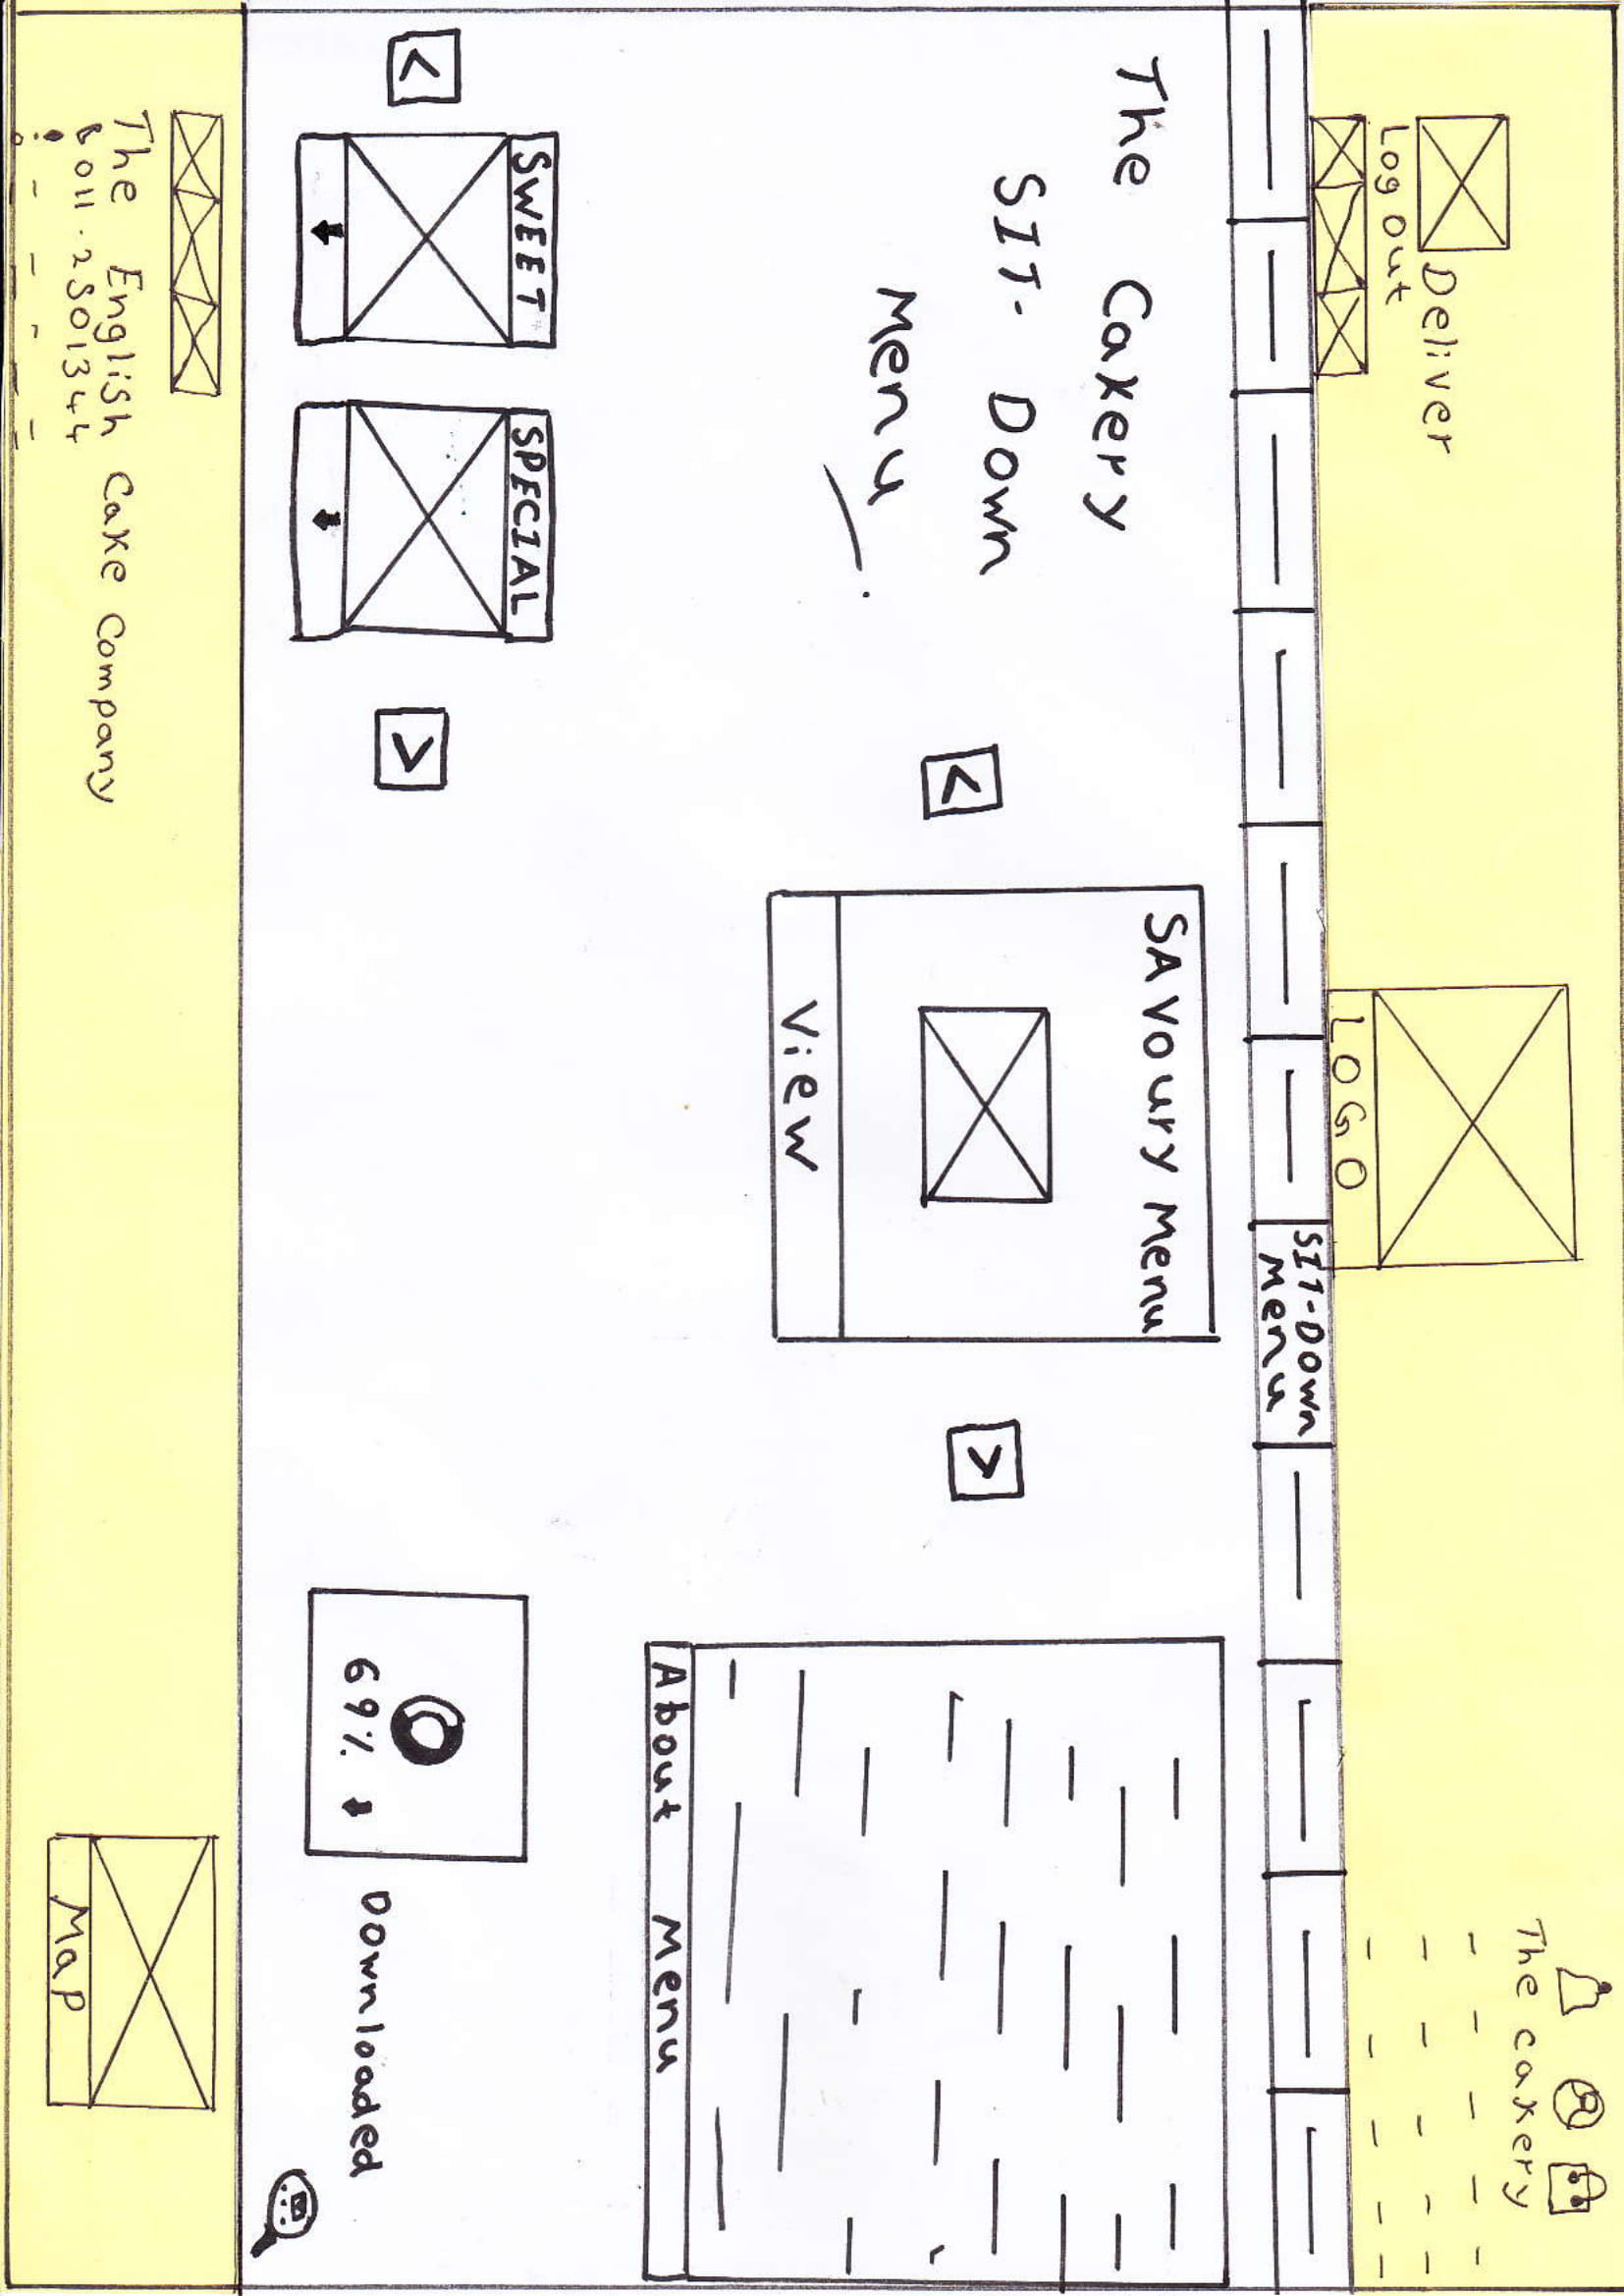 The cakery
Deliver
Log Out
LOGO
SIT-DOWN
Menu
The Cakery
SIT- Down
Menu
SAVoury Menu
<
>
View
About Menu
SWEET
SPECIAL
<
>
69%
Downloaded
The English Cake Company
011-2501344
Map